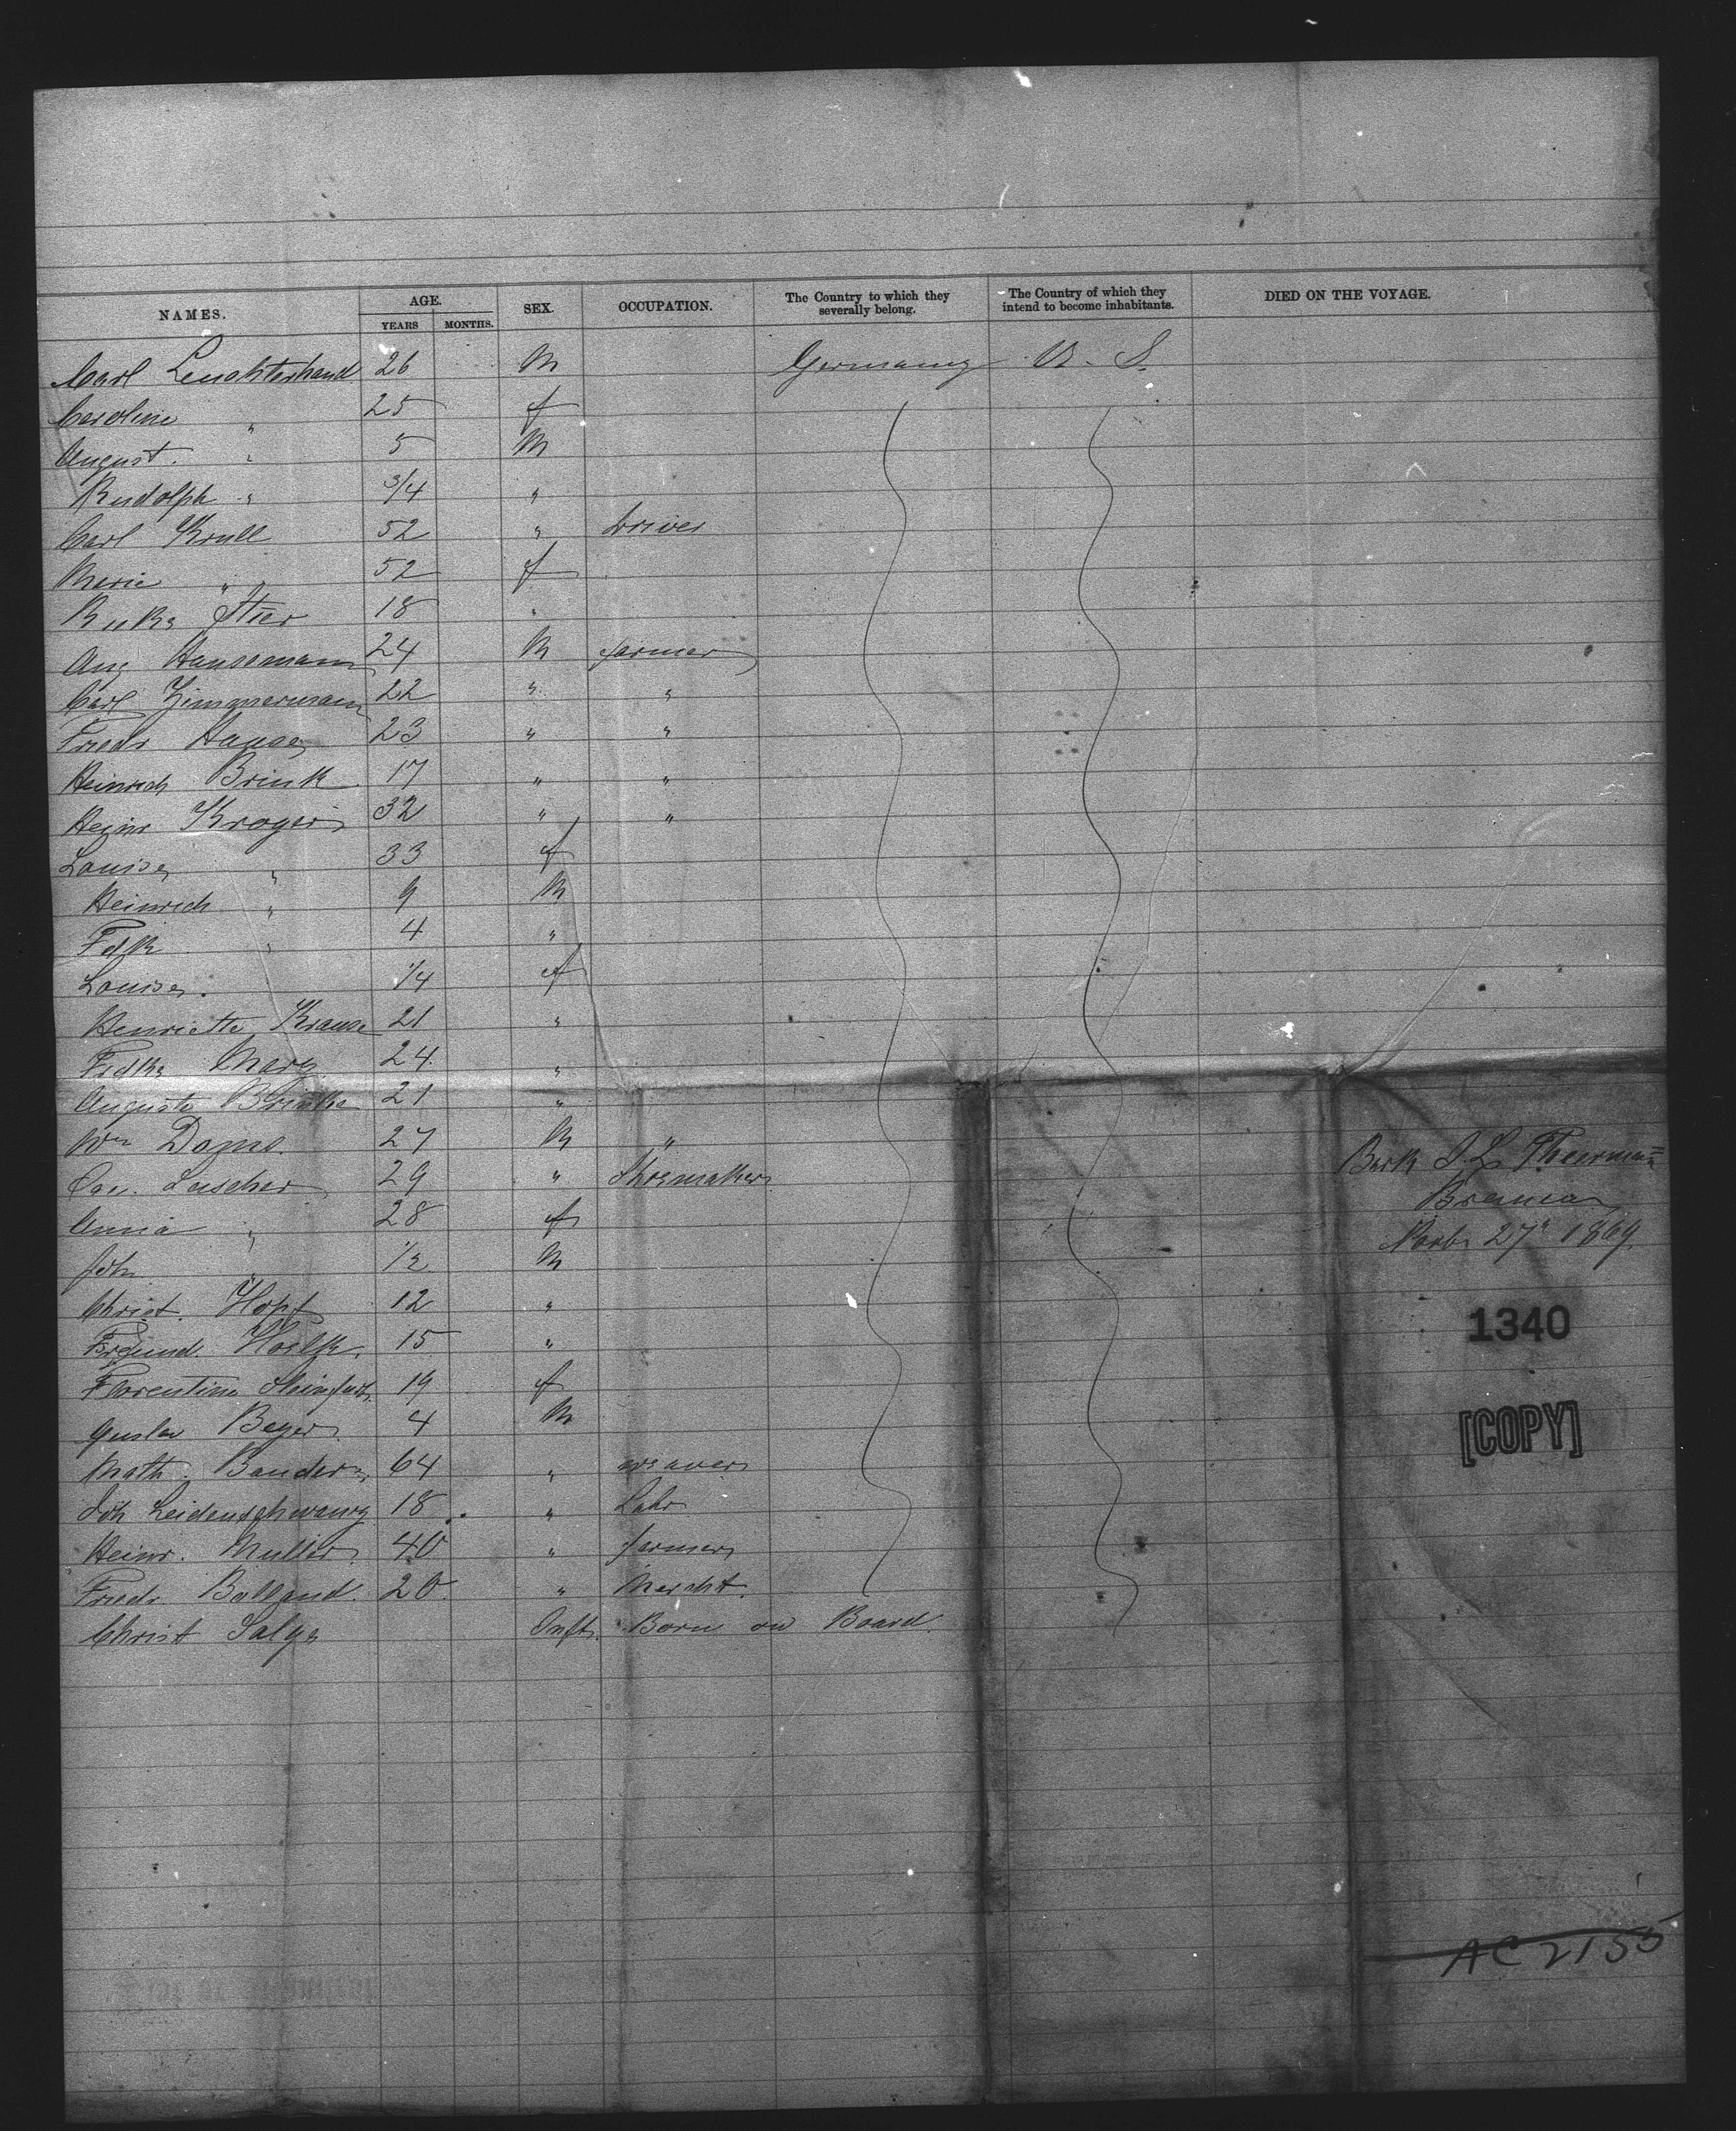 NAMES. AGE. YEARS MONTHS. SEX. OCCUPATION. The Country to which they severally belong. The Country of which they intend to become inhabitants. DIED ON THE VOYAGE.
Carl Leuchterhand 26 M Germany U. S.
Caroline " 25 f
August " 5 M
Rudolph " 3/4 "
Carl Krull 52 " Driver
Marie " 52 f
Rieke Stier 18 "
Aug Hansemann 24 M farmer
Carl Zimmermann 22 " "
Friedr Hanse 23 " "
Heinrich Brink 17 " "
Heinr Kroger 32 " "
Louise " 33 f
Heinrich " 9 M
Fdk " 4 "
Louise. 1/4 f
Henriette Krause 21 "
Fedke Marg 24 "
Auguste Brinke 21 "
Wm Doms. 27 M "
Luscher 29 " Shoemaker
Anna " 28 f
Joh " 1/2 M
Christ. Hopf 12 "
15 "
Florentine 19 f
Gustav Beyer 4 M
Math. Bander 64 " weaver
Joh Leidenschwang 18 " Labr
Heinr. Muller 40 " farmer
Friedr Balland. 20 " Mercht.
Christ Salge Inft. Born on Board.
Bark I. L. Theermann
Bremen
Novbr 27" 1869.
1340
[COPY]
AC 2155